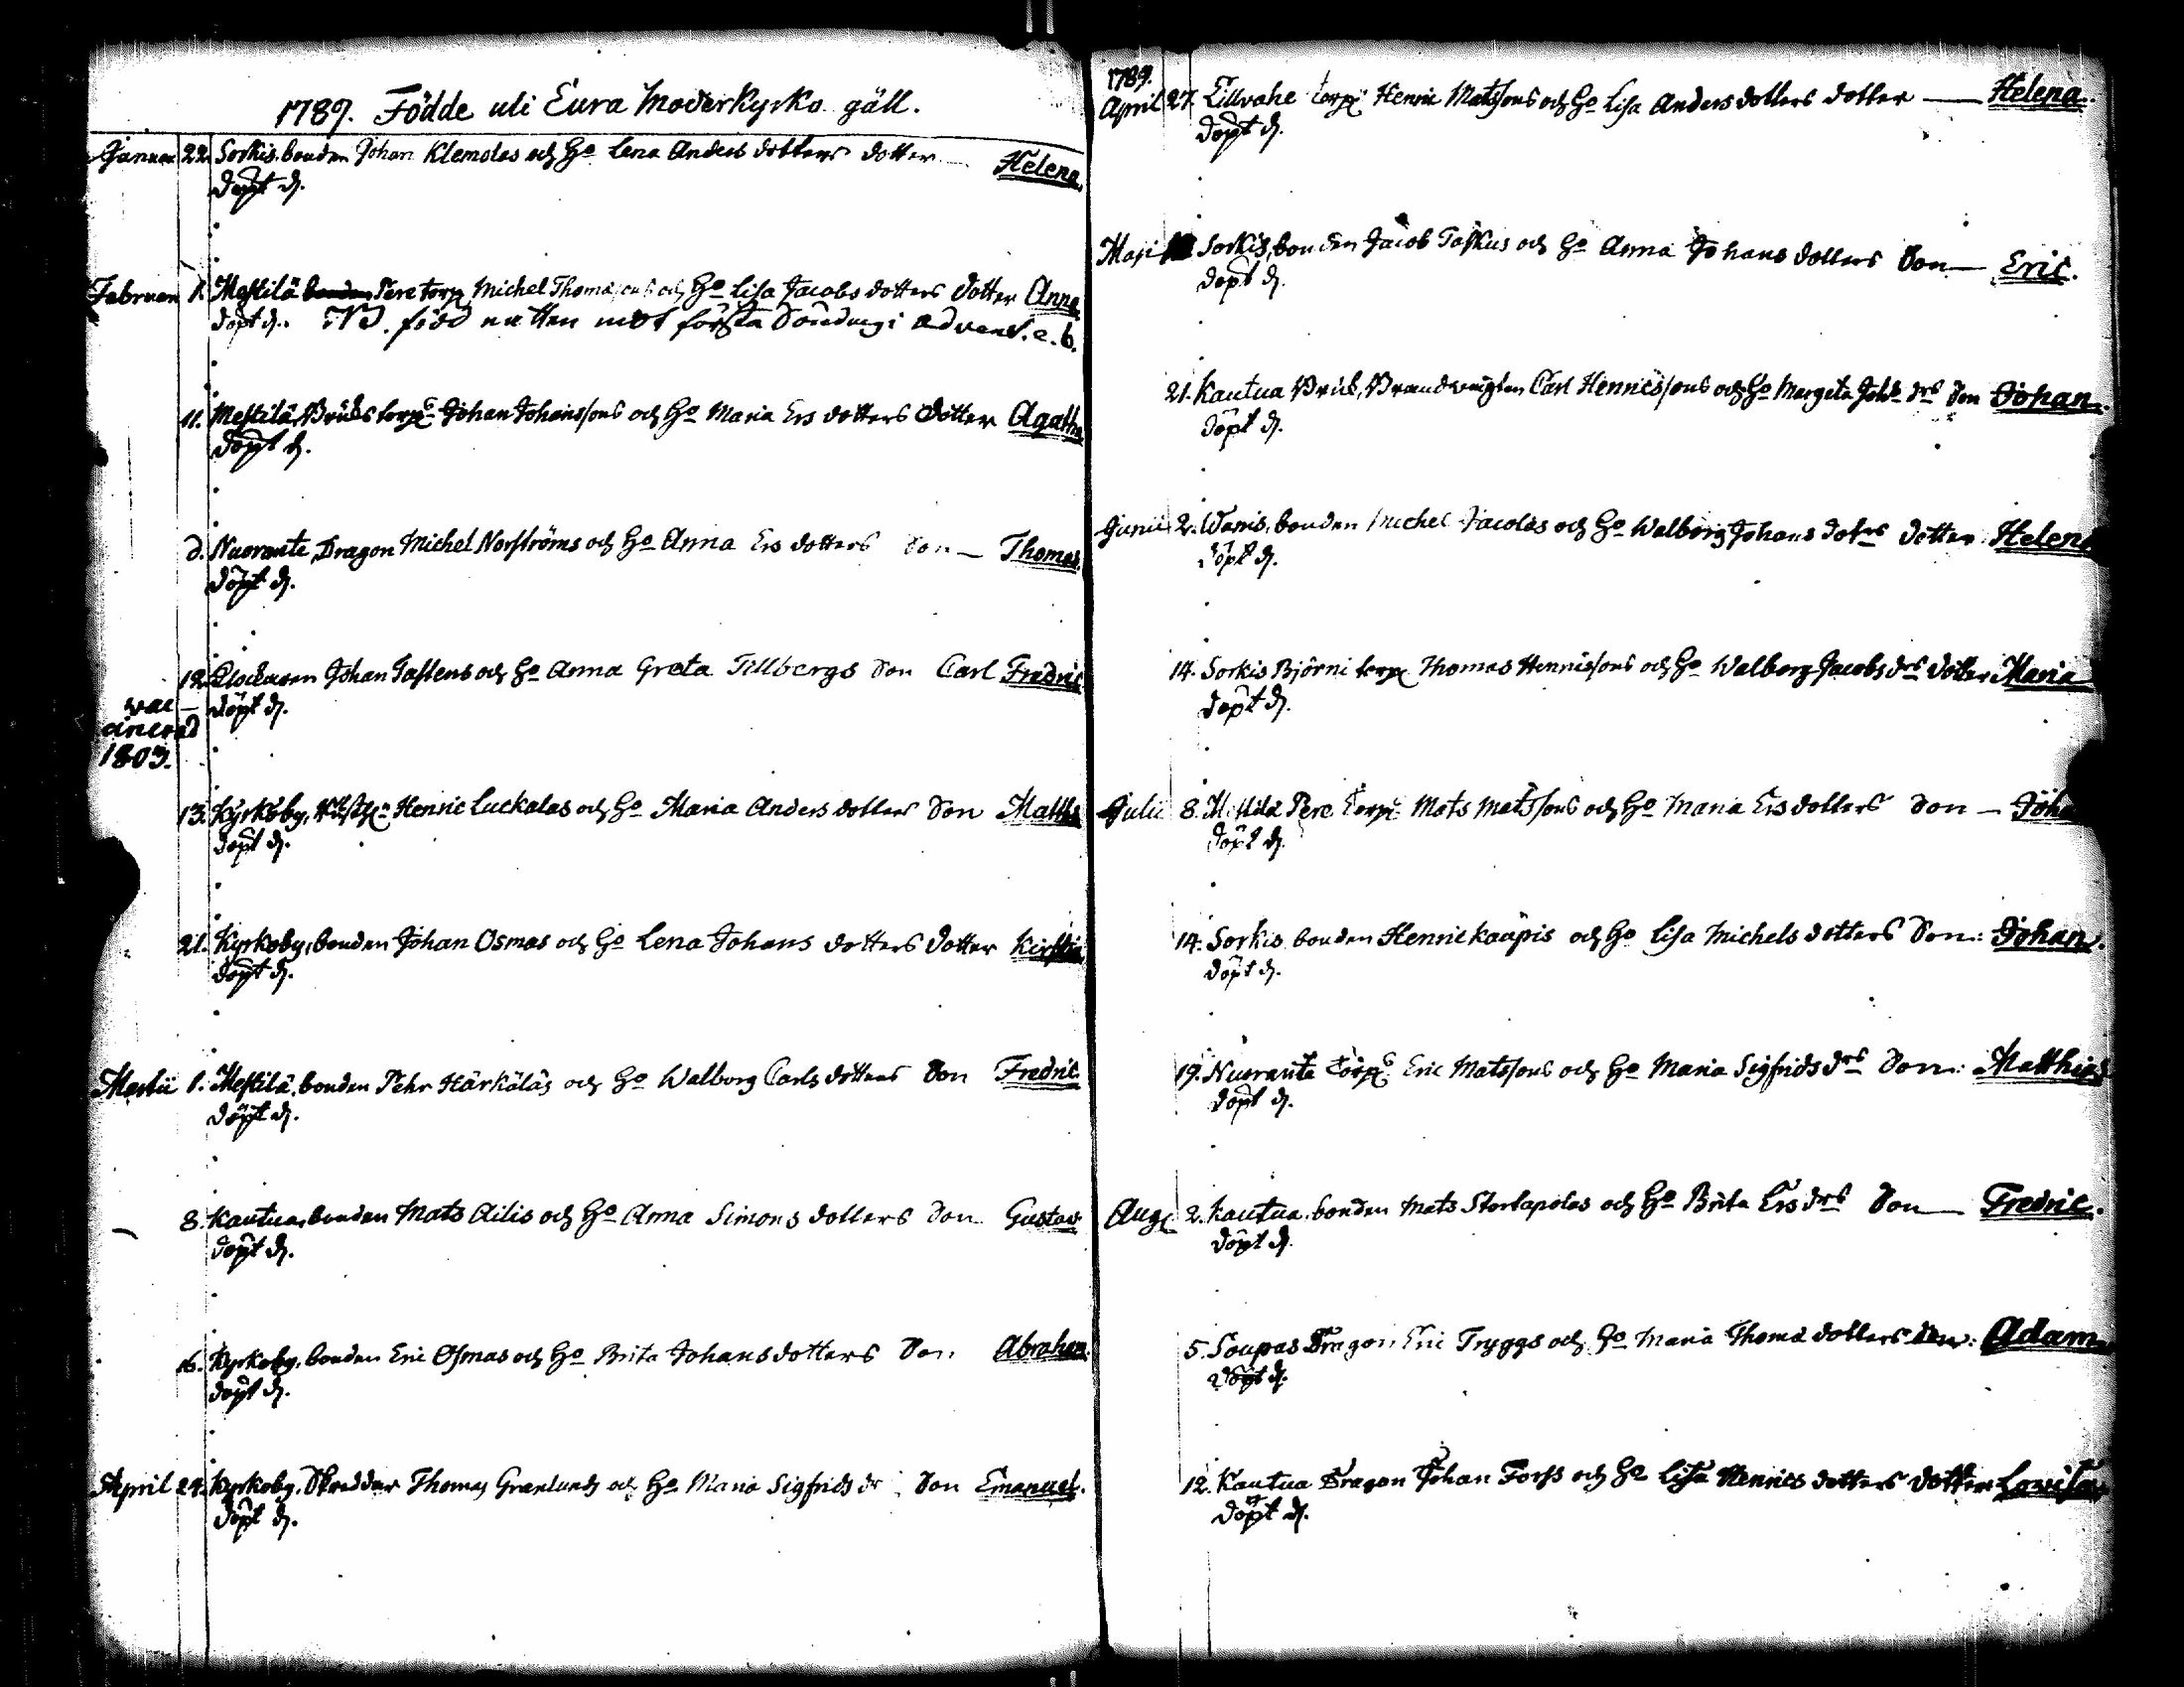 1789. Födde uti Eura Moderkyrko gäll.
Januar 22. Sorkis, bonden Johan Klemolas och Ho Lena Anders dotters dotter Helena
Döpt d.
Februar 1. Mestilä bonden Pere torp Michel Thomæsons och Ho Lisa Jacobs dotters dotter Anna
Döpt d. föd natten mot första Söndag i advent. e. b.
11. Mestilä, torp Johan Johanssons och Ho Maria Ers dotters dotter Agatha
Döpt d.
d. Nuorante, Dragon Michel Norströms och Ho Anna Ers dotters Son — Thomas
Döpt d.
12. Clockaren Johan Tastens och Ho Anna Greta Tillbergs Son Carl Fredric
Döpt d.
vac-
cinerad
1803.
13. Kyrkoby, Henric Luckalas och Ho Maria Anders dotters Son Matths
Döpt d.
21. Kyrkoby, bonden Johan Osmas och Ho Lena Johans dotters dotter Kirstin
Döpt d.
Martii 1. Mestilä, bonden Pehr Härkäläs och Ho Walborg Carls dotters Son Fredric
Döpt d.
8. Kautua, bonden Mats Ailis och Ho Anna Simons dotters Son Gustav
Döpt d.
16. Kyrkoby, bonden Eric Osmas och Ho Brita Johans dotters Son Abraham
Döpt d.
April 24. Kyrkoby, Skreddar Thomas Granlunds och Ho Maria Sigfrids dr Son Emanuel.
Döpt d.
1789.
April 27. Lillvahe torp Henric Matssons och Ho Lisa Anders dotters dotter — Helena.
Döpt d.
Maji Sorkis, bonden Jacob Taskus och Ho Anna Johans dotters Son — Eric.
Döpt d.
21. Kautua Bruk, Carl Henricssons och Ho Margeta Johs drs Son Johan.
Döpt d.
Junii 2. Wanis, bonden Michel Jacolas och Ho Walborg Johans dotrs dotter Helena
Döpt d.
14. Sorkis Björni torp Thomas Henrissons och Ho Walborg Jacobs drs dotter Maria
Döpt d.
Julii 8. Mestilä Pere Torp Mats Matssons och Ho Maria Ers dotters Son — Joha
Döpt d.
14. Sorkis, bonden Henric Kaupis och Ho Lisa Michels dotters Son: Johan.
Döpt d.
19. Nuoranta Torp Eric Matssons och Ho Maria Sigfrids drs Son: Matthias
Döpt d.
Aug. 2. Kautua, bonden Mats Stortapolas och Ho Brita Ers drs Son — Fredric.
Döpt d.
5. Soupas Dragon Eric Tryggs och Ho Maria Thomæ dotters Son: Adam
Döpt d.
12. Kautua Dragon Johan Forss och Ho Lisa Henrics dotters dotter Lovisa
Döpt d.